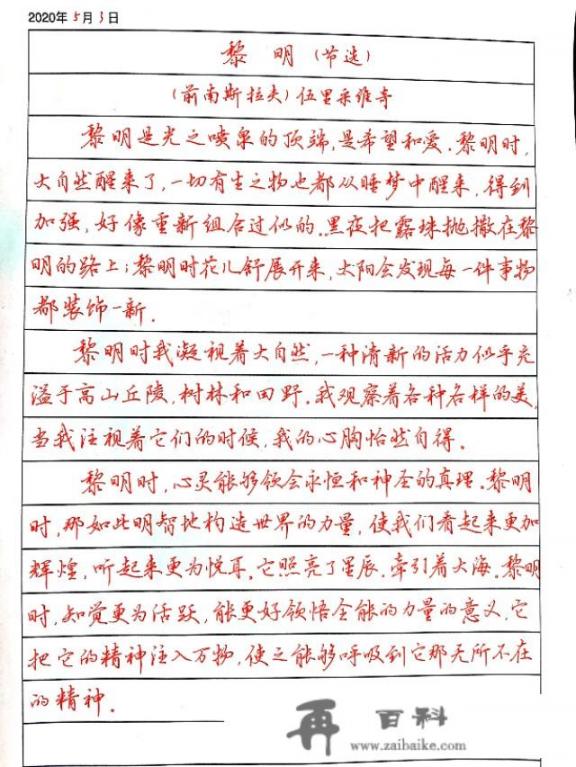 2020年5月3日
黎明（节选）
（前南斯拉夫）伍里采维奇
黎明是光之喷泉的顶端,是希望和爱.黎明时,
大自然醒来了,一切有生之物也都从睡梦中醒来,得到
加强,好像重新组合过似的.黑夜把露珠抛撒在黎
明的路上;黎明时花儿舒展开来,太阳会发现每一件事物
都装饰一新.
黎明时我凝视着大自然,一种清新的活力似乎充
溢于高山丘陵,树林和田野.我观察着各种各样的美,
当我注视着它们的时候,我的心胸怡然自得.
黎明时,心灵能够领会永恒和神圣的真理.黎明
时,那如此明智地构造世界的力量,使我们看起来更加
辉煌,听起来更为悦耳.它照亮了星辰.牵引着大海.黎明
时,知觉更为活跃,能更好领悟全能的力量的意义.它
把它的精神注入万物,使之能够呼吸到它那无所不在
的精神.
再 百科
www.zaibaike.com